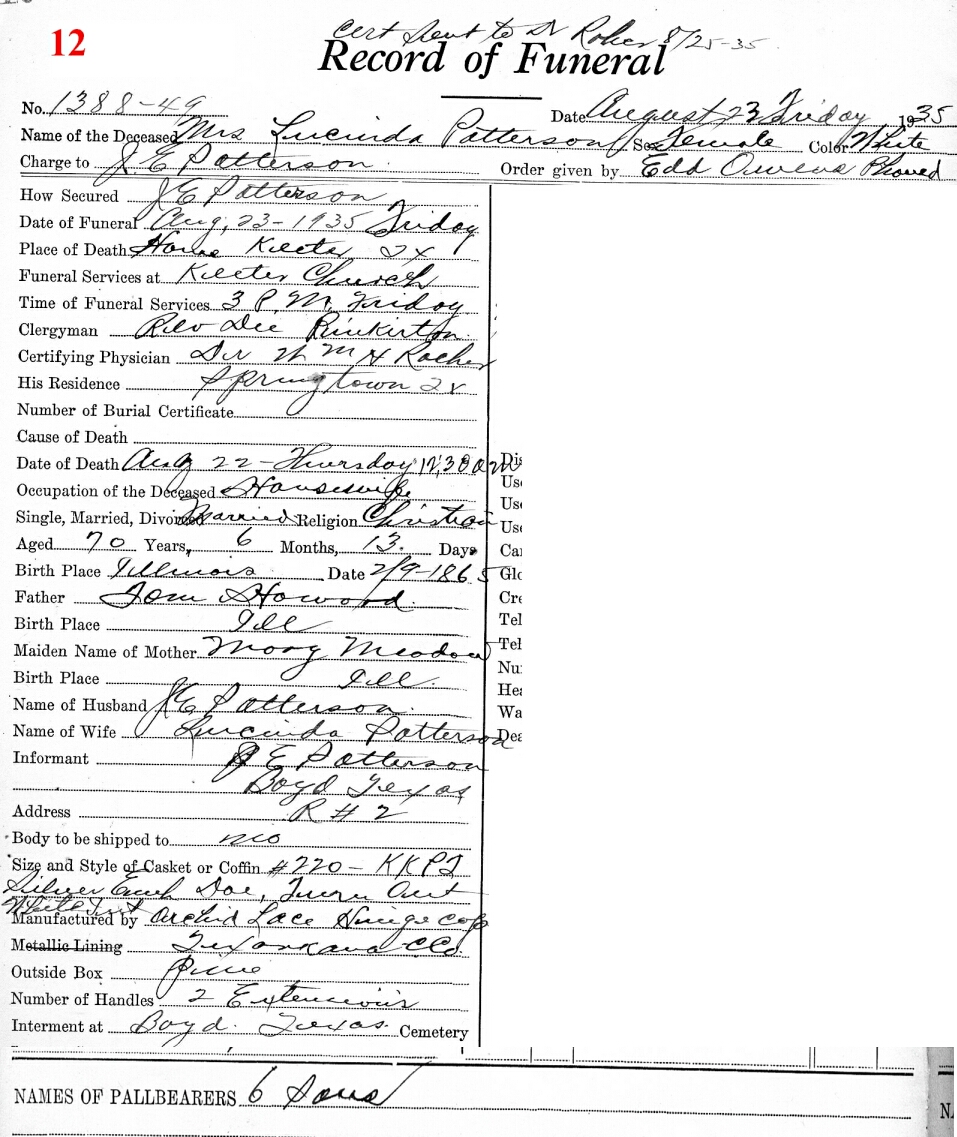 12
Cert sent to Dr Roher 8/25-35
Record of Funeral
No. 1388-49 Date August 23 Friday 1935
Name of the Deceased Mrs Lucinda Patterson Sex Female Color White
Charge to J E Patterson Order given by Edd Owens Phoned
How Secured J E Patterson
Date of Funeral Aug, 23-1935 Friday
Place of Death Home Keeter Tx
Funeral Services at Keeter Church
Time of Funeral Services 3 P.M. Friday
Clergyman Rev Dee Pinkirton
Certifying Physician Dr W M H
His Residence Springtown Tx
Number of Burial Certificate
Cause of Death
Date of Death Aug 22-Thursday 12,30 am Dis
Occupation of the Deceased Housewife Use
Single, Married, Divorced Married Religion Christian Use
Aged 70 Years, 6 Months, 13. Days Car
Birth Place Illinois Date 2/9-1865 Glo
Father Tom Howard Cre
Birth Place Ill Tel
Maiden Name of Mother Mary Meadow Tel
Birth Place Ill. Hea
Name of Husband J E Patterson Wa
Name of Wife Lucinda Patterson Dea
Informant J E Patterson
Boyd Texas
Address R # 2
Body to be shipped to no
Size and Style of Casket or Coffin #220-KKPT
Silver Doe, Turn Out
White Int
Manufactured by Orchid Lace Hinge cap
Metallic Lining Texarkana C Co
Outside Box pine
Number of Handles 2 Extensions
Interment at Boyd. Texas. Cemetery
NAMES OF PALLBEARERS 6 Sons